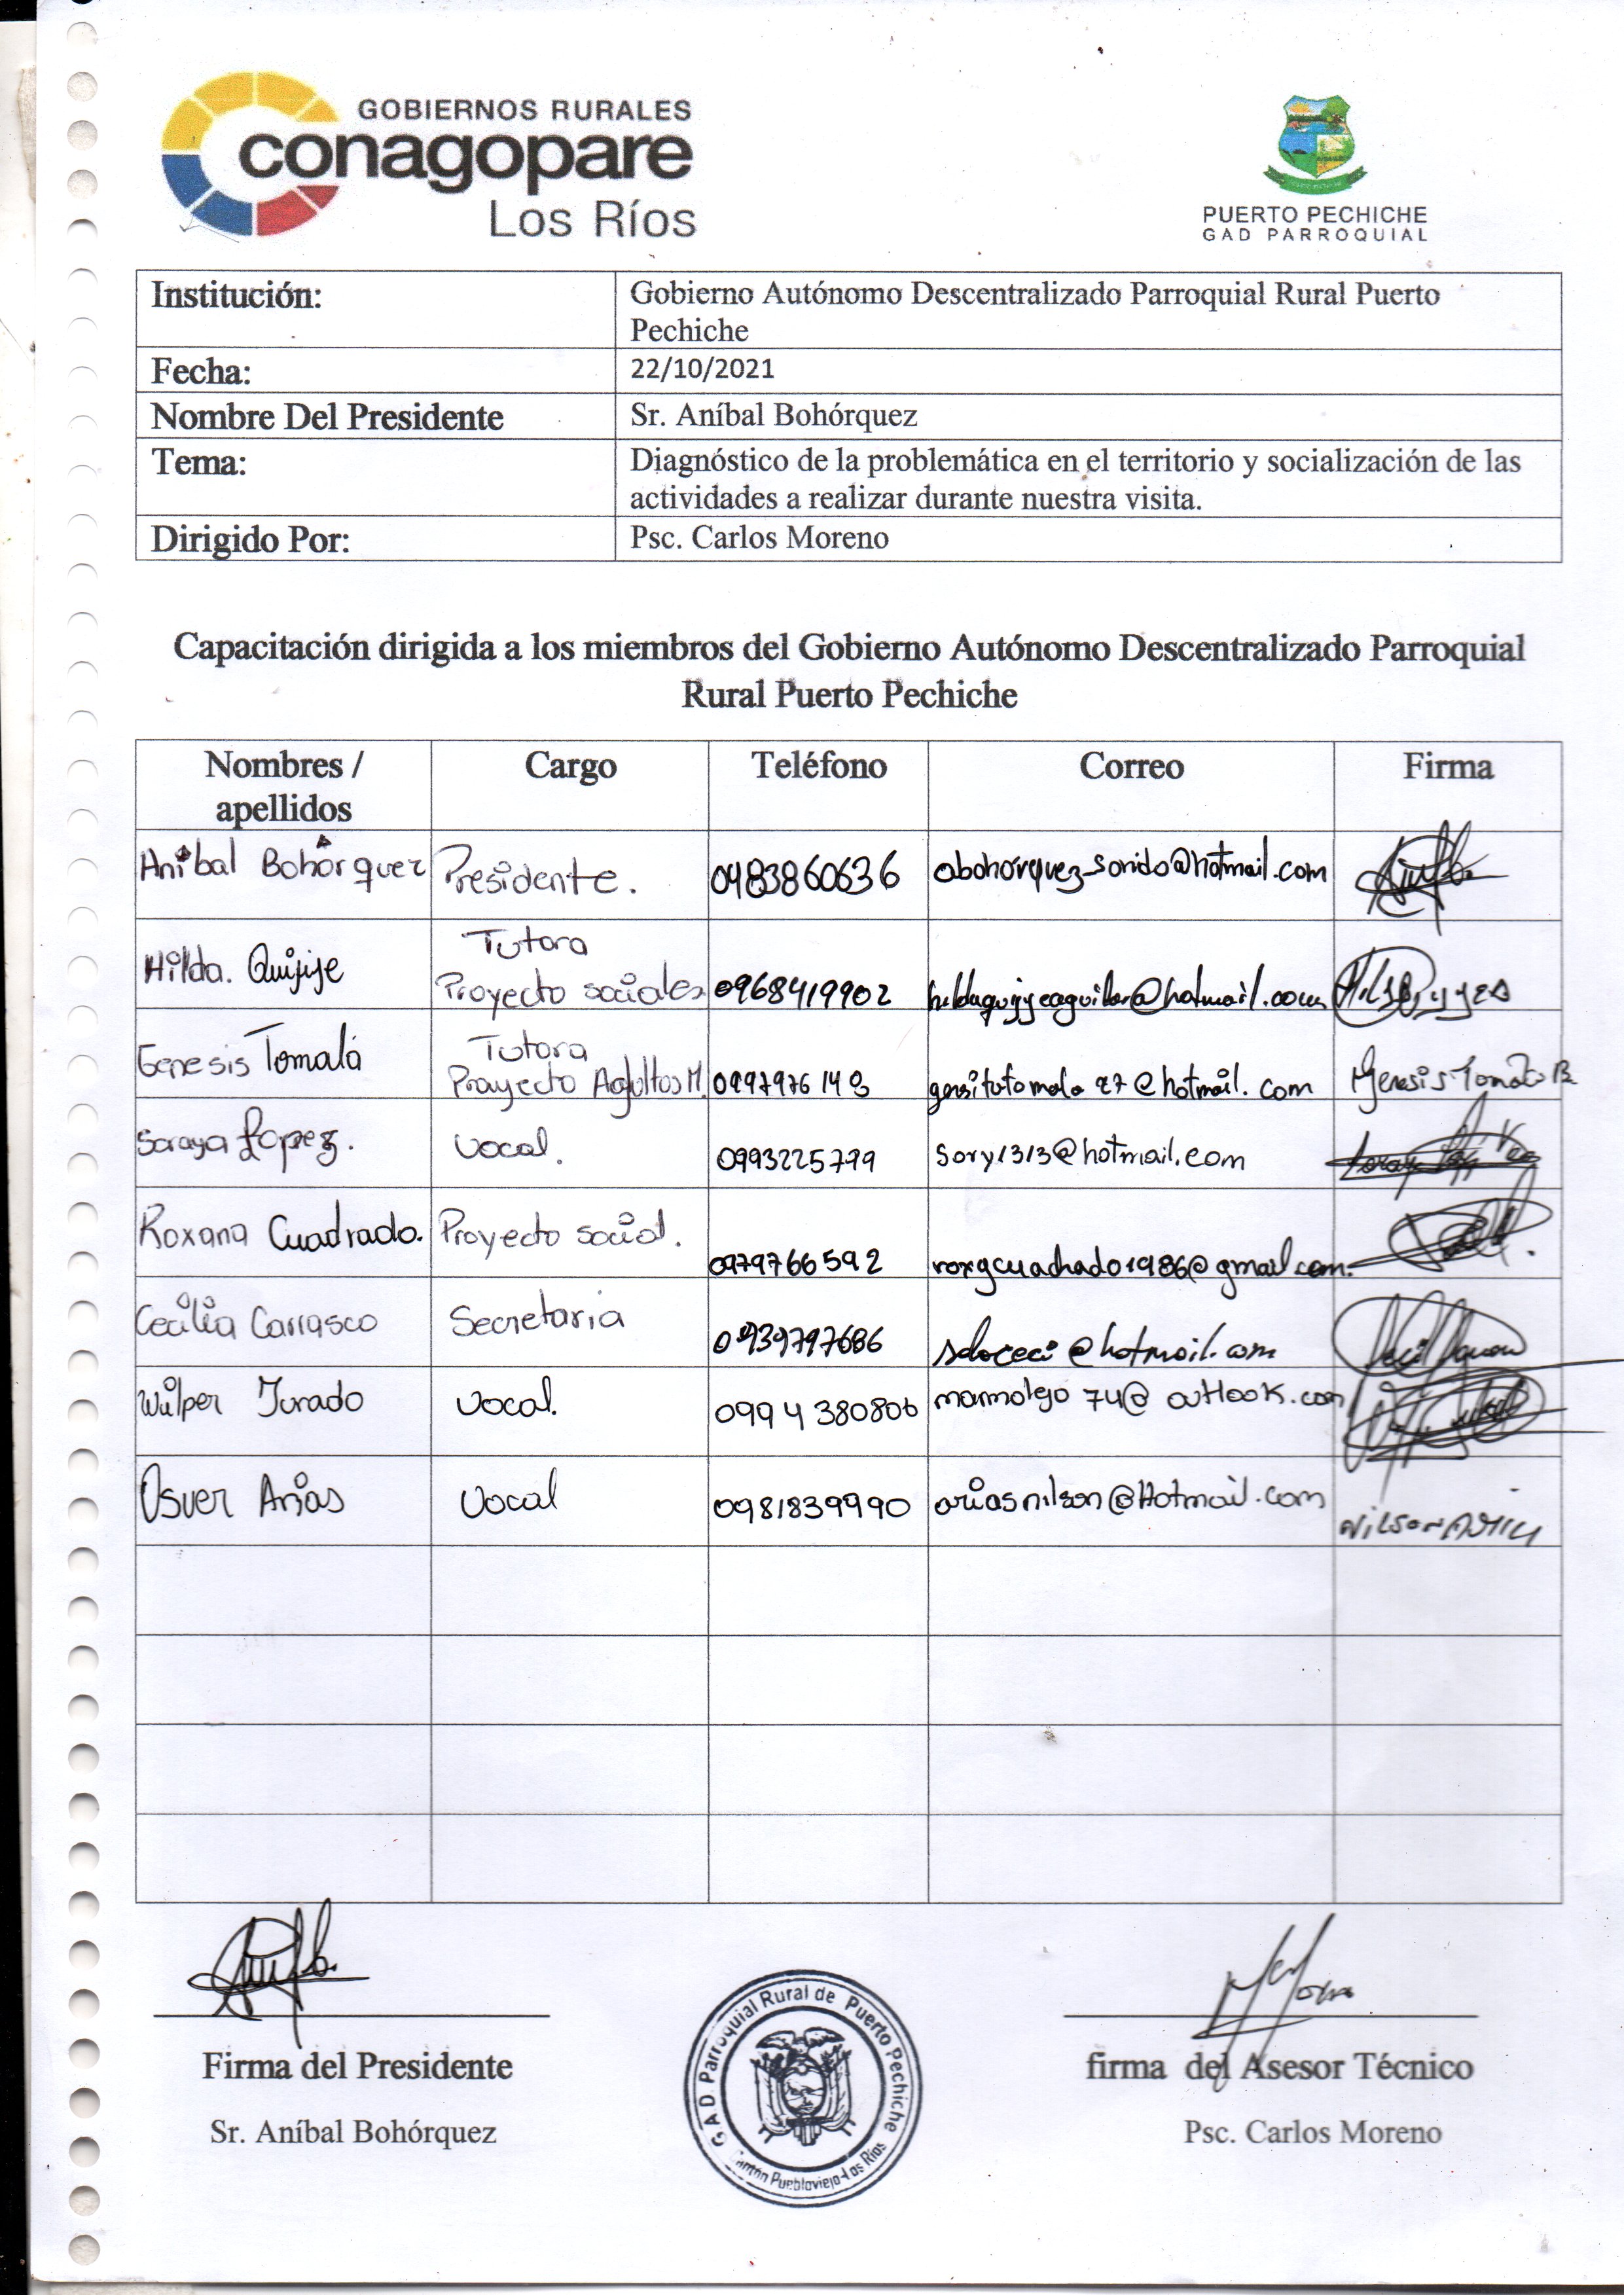 GOBIERNOS RURALES
conagopare
Los Ríos
PUERTO PECHICHE
GAD PARROQUIAL
Institución: Gobierno Autónomo Descentralizado Parroquial Rural Puerto
Pechiche
Fecha: 22/10/2021
Nombre Del Presidente Sr. Aníbal Bohórquez
Tema: Diagnóstico de la problemática en el territorio y socialización de las
actividades a realizar durante nuestra visita.
Dirigido Por: Psc. Carlos Moreno
Capacitación dirigida a los miembros del Gobierno Autónomo Descentralizado Parroquial
Rural Puerto Pechiche
Nombres / Cargo Teléfono Correo Firma
apellidos
Anibal Bohórquez Presidente. 0483860636 abohorquez-sonido@hotmail.com
Tutora
Hilda. Quijije Proyecto sociales 0968419902
Tutora
Genesis Tomalá Proyecto Adultos M. Genesis Tomalá B
Soraya Lopez. Vocal. 0993225799 sory1313@hotmail.com
Roxana Cuadrado. Proyecto social. 0979766592 roxgcuadrado1986@gmail.com.
Cecilia Carrasco Secretaria 0939797686
Wilper Jurado Vocal. 0994380806 marmolejo74@outlook.com
Osver Arias Vocal 0981839990 ariasnilson@Hotmail.com
Firma del Presidente
Sr. Aníbal Bohórquez
GAD Parroquial Rural de Puerto Pechiche
Cantón Puebloviejo-Los Ríos
firma del Asesor Técnico
Psc. Carlos Moreno